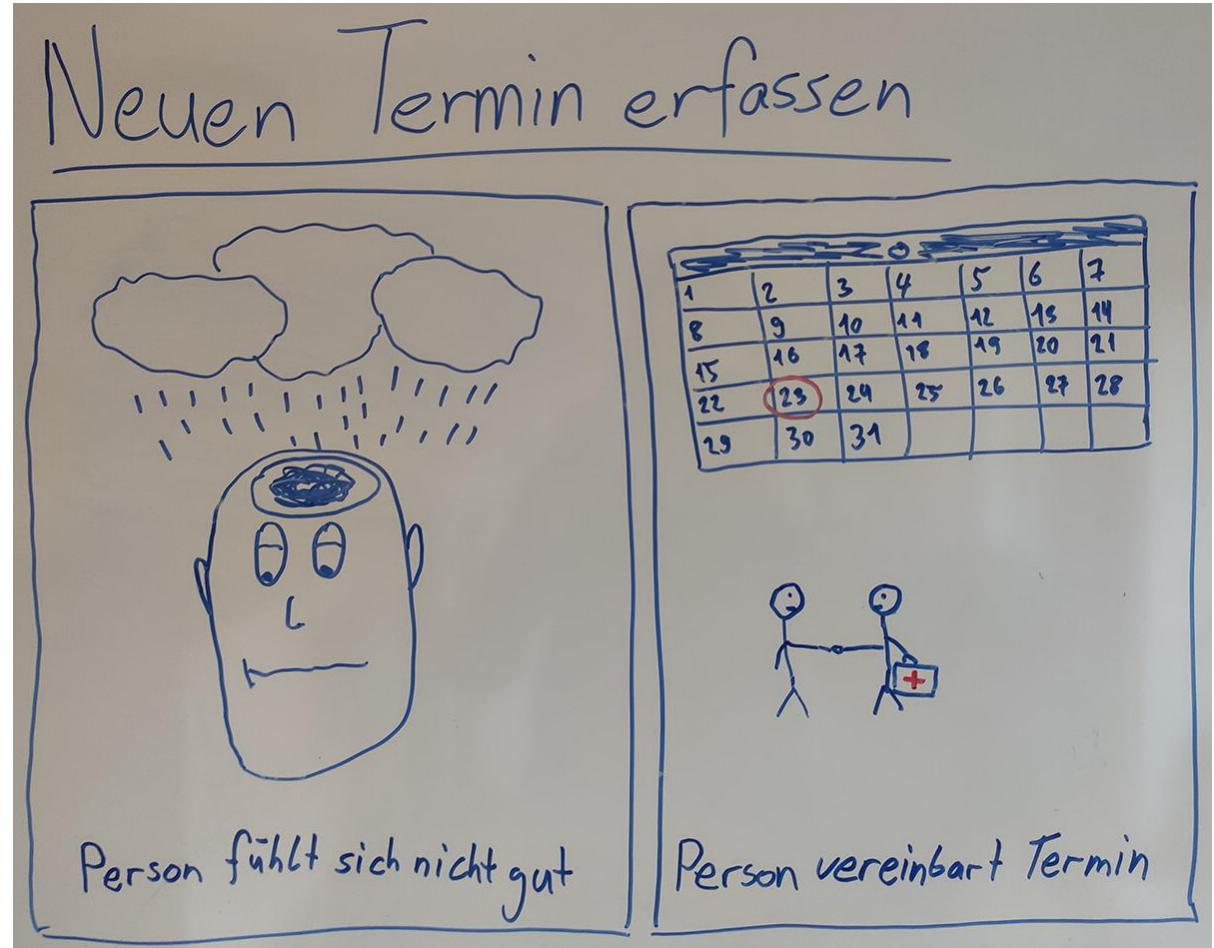 Neuen Termin erfassen
Person fühlt sich nicht gut
1 2 3 4 5 6 7
8 9 10 11 12 13 14
15 16 17 18 19 20 21
22 23 24 25 26 27 28
29 30 31
Person vereinbart Termin